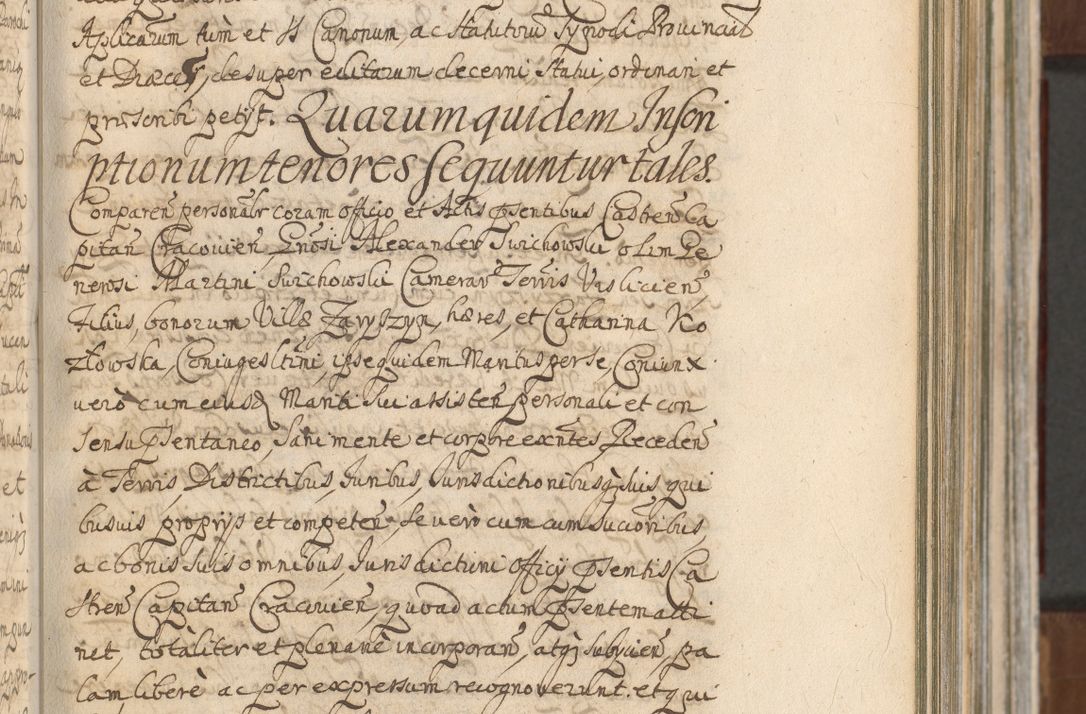 Aplicarum tum et SS Canonum, ac Statutorũ Synodi Provincial
et Diæces, desuper editarum decerni, statui, ordinari et
præscribi petijt. Quarum quidem Inscri
ptionum tenores sequuntur tales.
Comparen̄ personalr coram officio et Actis p̄sentibus Castren̄ Ca
pitan̄ Cracovien̄ Gnosi Alexander Swichowski olim Ge
nerosi Martini Swichowski Camerar̄ Terris Vaslicien̄,
Filius, bonorum Villæ Zaryszyn, hæres, et Catharina Ko
złowska, Coniuges ltimi, ipse quidem Maritus per se, Coniunx
vero cum eiusdʒ Mariti sui assisten̄ personali et con
sensu p̄sentaneo, sani mente et corpore exñtes, Receden̄
à Terris, Districtibus, Iuribus, Iurisdictionibusqʒ suis qui
busuis proprijs et competen̄, se vero cum cum succoribus,
ac bonis suis omnibus, Iurisdictioni officij p̄sentis Ca
stren̄ Capitan̄ Cracovien̄, quoad actum p̄sentem atti
net, totaliter et plenariè incorporan̄, atqʒ subijcien̄, pa
lam liberè ac per expressum recognoverunt. et qui